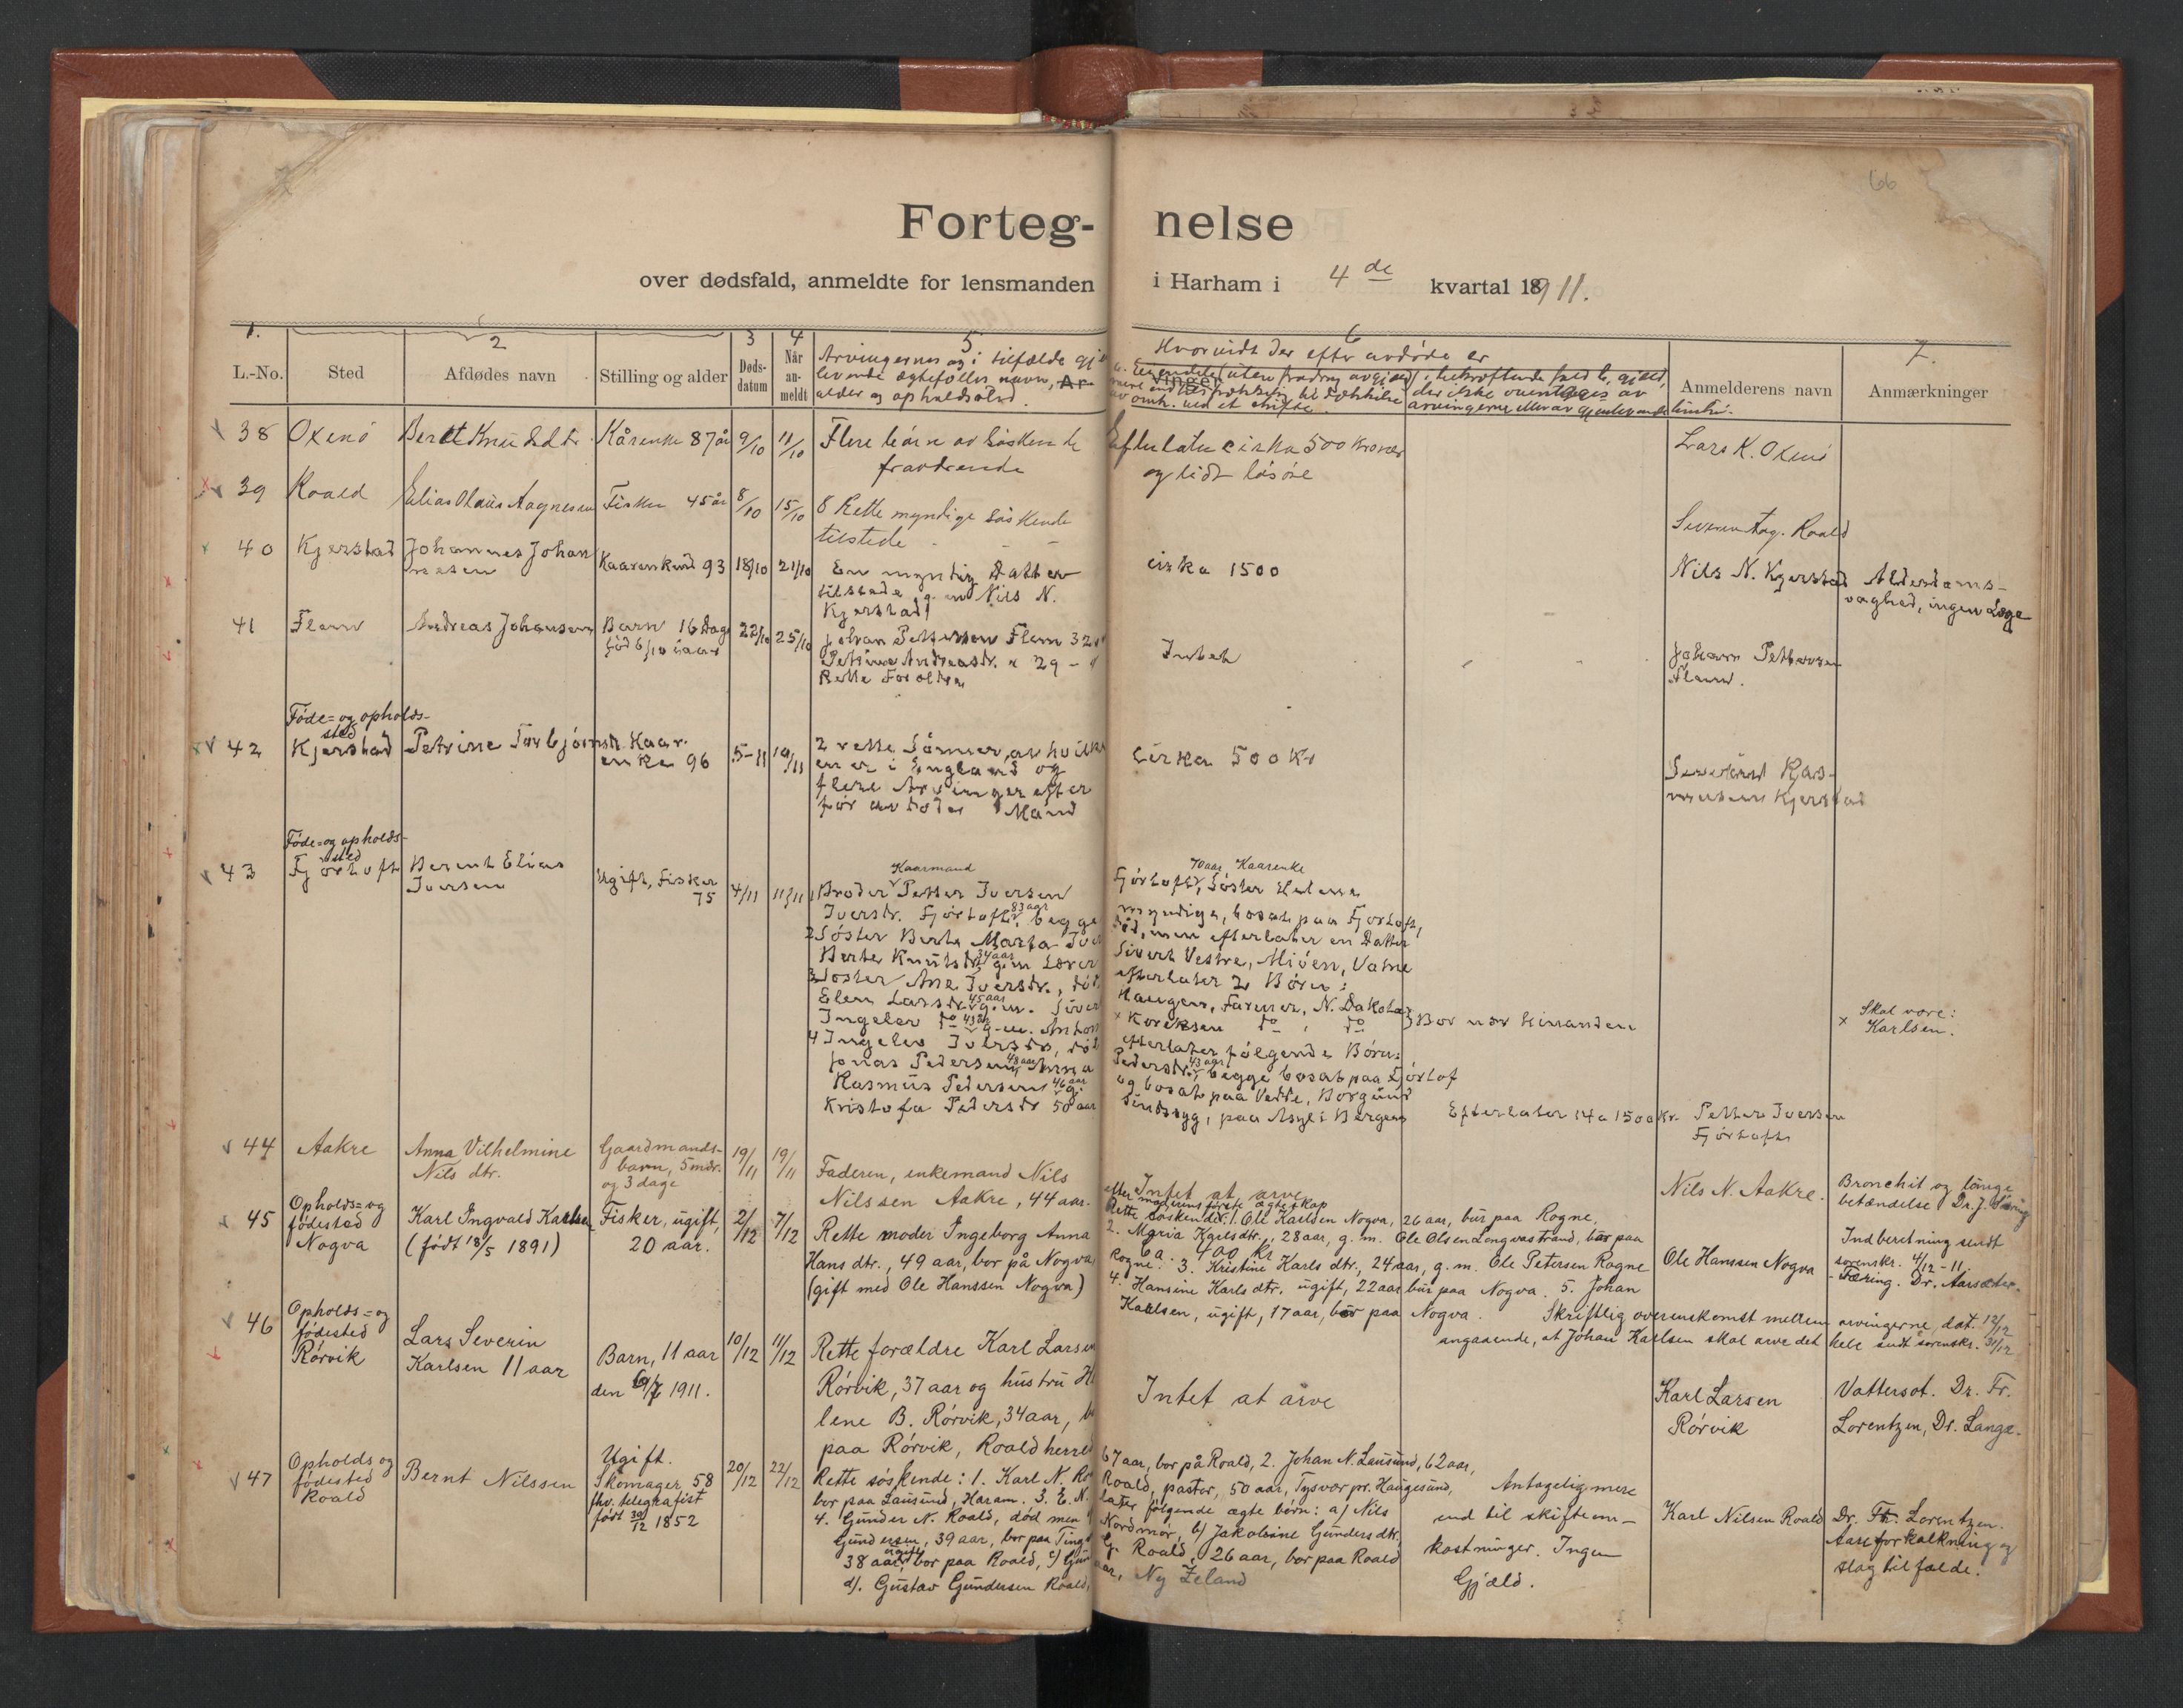 66
Forteg- nelse
over dødsfald, anmeldte for lensmanden i Harham i 4 de kvartal 1911.
1. 2 3 4 5 6 7.
L.-No. Sted Afdødes navn Stilling og alder Døds-datum Når an-meldt
Arvingernes og i tilfælde
levende ægtefælles navn,
alder og opholdssted.
Hvorvidt der efter avdøde er
Anmelderens navn Anmærkninger
38 Oxenö Berit Knudsdtr. Kårenke 87 år 9/10 11/10 Flere børn av söskende
fraværende
Efterlater cirka 500 kroner
og lidt lösöre
Lars K. Oxnö
39 Roald Elias Olaus Aagnesen Fisker 45 år 8/10 15/10 8 Rette myndige Söskende
tilstede
Severin Aag. Roald
40 Kjerstad Johannes Johan
nesen
Kaarenkend 93 18/10 21/10 En myndig Datter
tilstede g. m Nils N.
Kjerstad
cirka 1500
Nils N. Kjerstad
Alderdoms-
svaghed, ingen Læge
41 Flem Andreas Johansen Barn 16 Dage
född 6/10 iaar
22/10 25/10 Johan Pettersen Flem 32
Petrine Andreasdr. " 29 - "
Rette Forældre
Intet
Johan Pettersen
Flem.
Föde= og opholds-
sted
42 Kjerstad Petrine Torbjörnsdr. Kaar-
enke 96
5-11 10/11
2 rette Sönner, av hvilke
en er i England og
flere Arvinger efter
før avdöde Mand
cirka 500 Kr
Rasmusen Kjerstad
Föde= og opholds-
sted
43 Fjörtoft Bernt Elias
Iversen
Ugift, Fisker
75
4/11 11/11
Kaarmand
1 Broder Petter Iversen
Iversdr. Fjörtoft, 83 aar begge
2 Söster Berte Marta Iver
Berte Knutsdr. 34 aar g.m Lærer
3 Söster Ane Iversdr., död
Elen Larsdr. 45 aar g.m. Siver
Ingeler do 43 aar g.m. Anton
4 Ingelev Iversdr., död
Jonas Pedersen, 48 aar Anna
Rasmus Pedersen 46 aar g.
Kristofa Pedersdr 50 aar
70 aar, Kaarenke
Fjörtoft, Söster Helene
myndige, bosat paa Fjörtoft,
död, men efterlater en Datter
Sivert Vestre, Miöen, Vatne
efterlater 2 Börn:
Haugen, Farmer, N. Dakota
x Koreksen do , do } Bor nær hinanden
efterlater fölgende Börn:
Pedersdr., 43 aar begge bosat paa Fjörtof
og bosat paa Vedde, Borgund
Sindssyg, paa Asyl i Bergen
Efterlater 14 a 1500 kr. Petter Iversen
Fjörtoft
x Skal være:
Karlsen.
44 Aakre Anna Vilhelmine
Nils dtr.
Gaardmands-
barn, 5 mdr.
og 3 dage
19/11 19/11
Faderen, enkemand Nils
Nilssen Aakre, 44 aar.
Intet at arve
Nils N. Aakre.
Bronchit og lunge
betændelse Dr. J.
45 Opholds= og
födested
Nogva
Karl Ingvald Karlsen
(født 18/5 1891)
Fisker, ugift,
20 aar.
2/12 7/12
Rette moder Ingeborg Anna
Hans dtr., 49 aar, bor på Nogva
(gift med Ole Hanssen Nogva)
efter moderens förste ægteskap
Rette söskende: 1. Ole Karlsen Nogva, 26 aar, bur paa Rogne,
2. Maria Karlsdtr., 28 aar, g. m. Ole Olsen Longvastrand, bor paa
ca. 400 kr
Rogne. 3. Kristine Karls dtr., 24 aar, g. m. Ole Petersen Rogne
4. Hansine Karls dtr. ugift, 22 aar bur paa Nogva. 5. Johan
Karlsen, ugift, 17 aar, bor paa Nogva. Skriftlig overenskomst mellem arvingerne, dat. 12/12
angaaende, at Johan Karlsen skal arve det hele sendt sorenskr. 31/12
Ole Hanssen Nogva
Indberetning sendt
sorenskr. 4/12 - 11.
- Tæring. Dr. Aarsæther.
46 Opholds= og
födested
Rörvik
Lars Severin
Karlsen 11 aar
Barn, 11 aar
den 6/7 1911.
10/12 11/12
Rette forældre Karl Larsen
Rörvik, 37 aar og hustru
lene B. Rörvik, 34 aar,
paa Rörvik, Roald herred
Intet at arve
Karl Larsen
Rörvik
Vattersot. Dr. Fr.
Lorentzen, Dr. Lange.
47 Opholds og
födested
Roald
Bernt Nilssen
Ugift.
Skomager 58
fhv. telegrafist
født 30/12 1852
20/12 22/12
Rette söskende: 1. Karl N. Ro
bor paa Lausund, Haram. 3. E. N.
4. Gunder N. Roald, död men
Gundersen, 39 aar, bor paa Ting
38 aar, ugift, bor paa Roald, c) Gun
d). Gustav Gundersen Roald,
67 aar, bor på Roald, 2. Johan N. Lausund, 62 aar,
Roald, pastor, 50 aar, Tysvær pr. Haugesund,
later fölgende ægte börn: a) Nils
Nordmör, b) Jakobine Gunders dtr,
G. Roald, 26 aar, bor paa Roald
aar, Ny Zeland
Antagelig mere
end til skifteom-
kostninger. Ingen
Gjæld.
Karl Nilsen Roald
Dr. Fr. Lorentzen.
Aareforkalkning og
slag tilfælde.